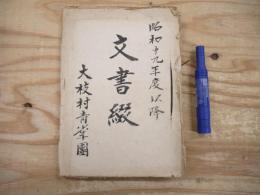 昭和十九年度以降
文書綴
大枝村青年團